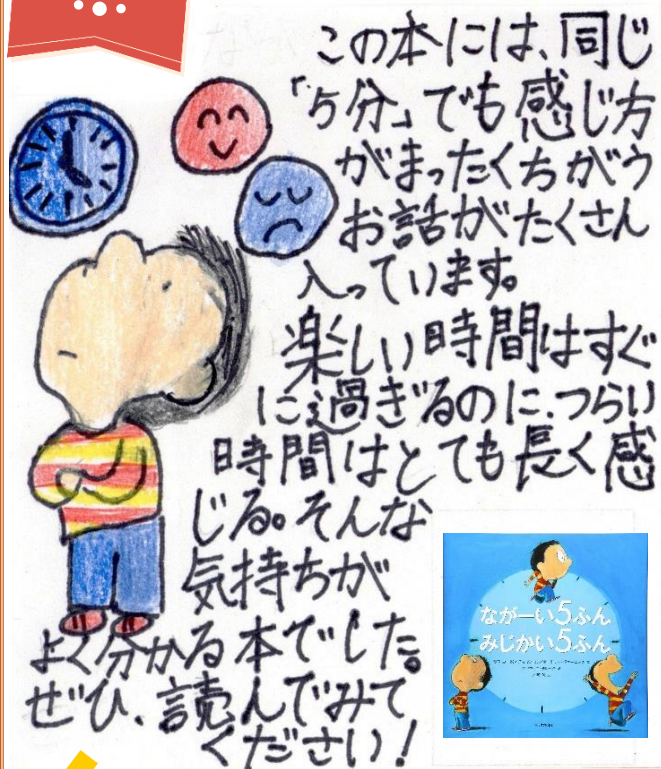 この本には、同じ
「5分」でも感じ方
がまったくちがう
お話がたくさん
入っています。
楽しい時間はすぐ
に過ぎるのに、つらい
時間はとても長く感
じる。そんな
気持ちが
よく分かる本でした。
ぜひ、読んでみて
ください！
ながーい5ふん
みじかい5ふん